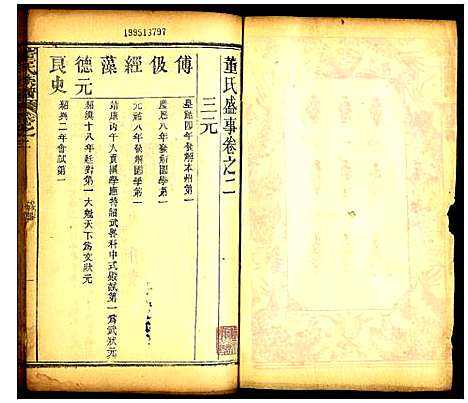 199513797
董氏盛事卷之二
三元
傅 皇祐四年發解本州第一
伋 慶曆八年發解國學第一
經 元祐八年發解國學第一
藻 靖康丙午人貢國學應特詔武舉科中式殿試第一爲武狀元
德元 紹興十八年廷對第一大魁天下爲文狀元
良史 紹興二年會試第一